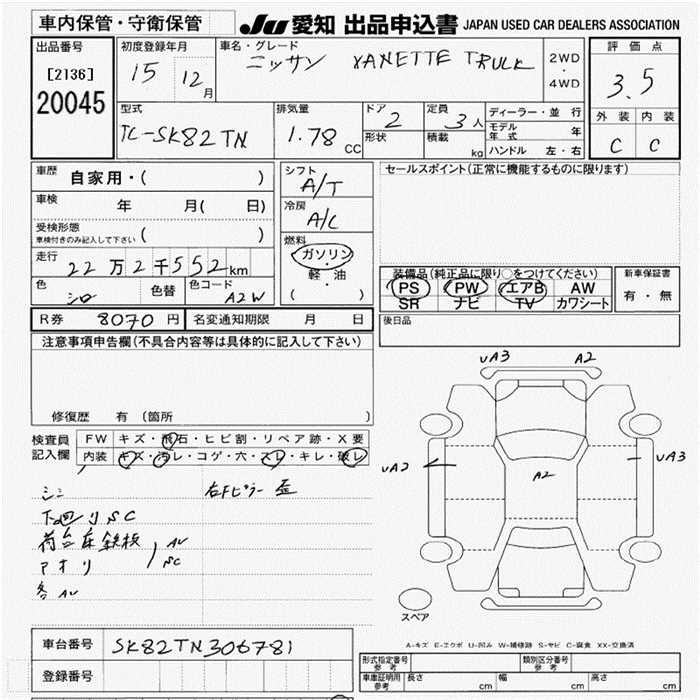 車内保管・守衛保管
JU 愛知 出品申込書 JAPAN USED CAR DEALERS ASSOCIATION
出品番号
[2136]
20045
初度登録年月
15 12月
車名・グレード
ニッサン VANETTE TRUCK
2WD・4WD
評価点
3.5
外装 内装
C C
型式
TC-SK82TN
排気量
1.78 CC
ドア 2
形状
定員 3人
積載 kg
ディーラー・並行
モデル年式 年
ハンドル 左・右
車歴 自家用・( )
車検 年 月( 日)
受検形態
車検付きのみ記入して下さい ( )
走行 22万2千552km
色 シロ
色替
色コード A2W
シフト A/T
冷房 A/C
燃料
ガソリン
軽・油
( )
セールスポイント(正常に機能するものに限ります)
装備品(純正品に限り○をつけてください)
PS PW エアB AW
SR ナビ TV カワシート
新車保証書
有・無
R券 8070円 名変通知期限 月 日
後日品
注意事項申告欄(不具合内容等は具体的に記入して下さい)
修復歴 有 (箇所 )
検査員記入欄
FW キズ・飛石・ヒビ割・リペア跡・X要
内装 キズ・汚レ・コゲ・穴・スレ・キレ・破レ
右Fピラー 歪
下回リSC
荷台床鉄板 AU
アオリ SC
各AU
UA3 A2
UA2 A2 UA3
スペア
A-キズ E-エクボ U-凹み W-補修跡 S-サビ C-腐食 XX-交換済
車台番号 SK82TN306781
登録番号
形式指定番号 参考
類別区分番号 参考
車庫証明用 参考 長さ cm 幅 cm 高さ cm